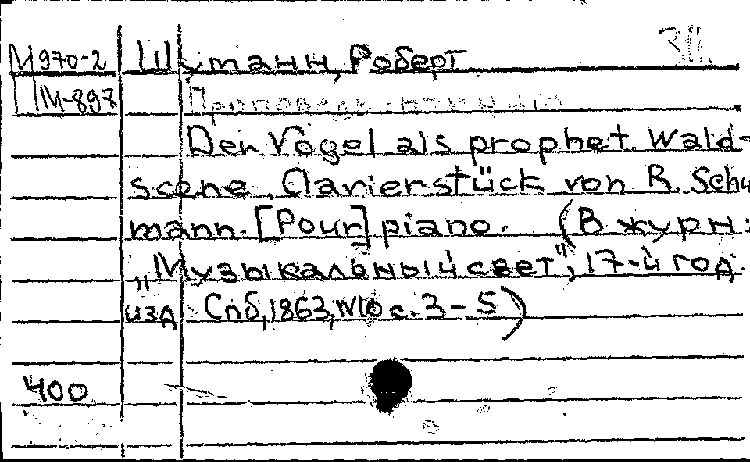 М970-2 Шуманн, Роберт
Ш-897
Der Vogel als prophet. Wald-
scene. Clavierstück von R. Schu
mann. [Pour] piano. (В журн:
„Музыкальный свет", 17-й год
изд Спб, 1863, №10 с. 3-5)
400